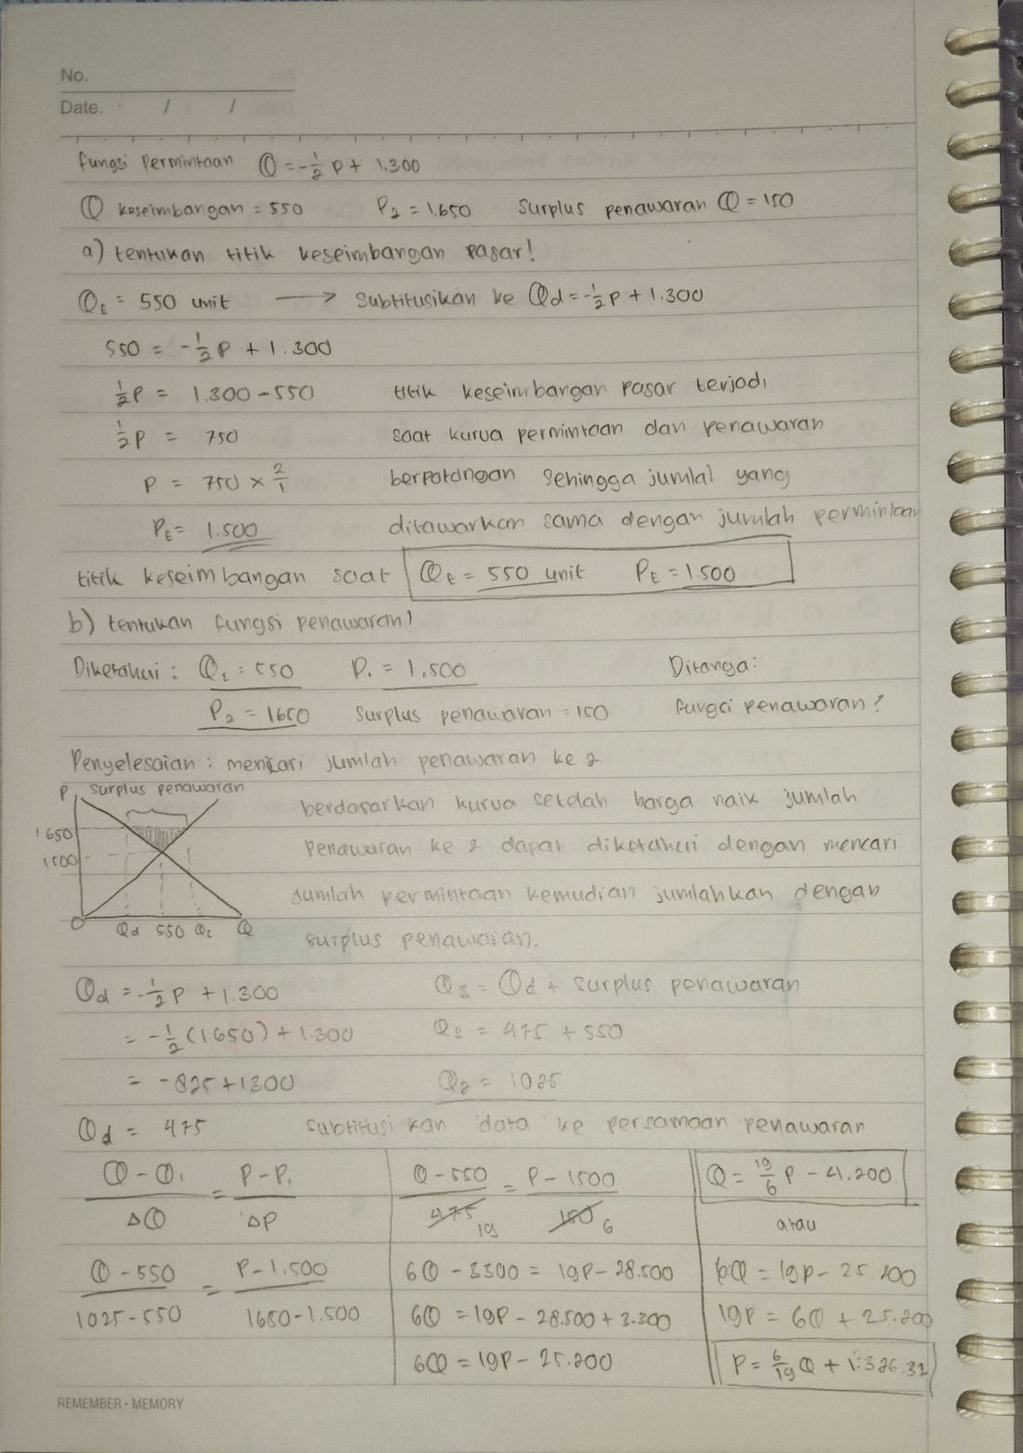 No.
Date. / /
fungsi Permintaan Q = -1/2 P + 1.300
Q keseimbangan = 550 P2 = 1.650 Surplus penawaran Q = 150
a) tentukan titik keseimbangan pasar!
QE = 550 unit → Subtitusikan ke Qd = -1/2 P + 1.300
550 = -1/2 P + 1.300
1/2 P = 1.300 - 550 titik keseimbangan pasar terjadi
1/2 P = 750 saat kurva permintaan dan penawaran
P = 750 × 2/1 berpotongan sehingga jumlal yang
PE = 1.500 ditawarkan sama dengan jumlah permintaan
titik keseimbangan saat QE = 550 unit PE = 1.500
b) tentukan fungsi penawaran!
Diketahui : Q1 = 550 P1 = 1.500 Ditanya:
P2 = 1650 Surplus penawaran = 150 fungsi penawaran?
Penyelesaian : mencari jumlah penawaran ke 2
P surplus penawaran
berdasarkan kurva setelah harga naik jumlah
1650
penawaran ke 2 dapat diketahui dengan mencari
1500
jumlah permintaan kemudian jumlahkan dengan
0 Qd 550 Qs Q
surplus penawaran.
Qd = -1/2 P + 1.300 Qs = Qd + surplus penawaran
= -1/2 (1650) + 1.300 Q2 = 475 + 550
= -825 + 1300 Q2 = 1025
Qd = 475 subtitusi kan data ke persamaan penawaran
Q - Q1 / ΔQ = P - P1 / ΔP
Q - 550 / 1025 - 550 = P - 1.500 / 1650 - 1.500
Q - 550 / 475 19 = P - 1500 / 150 6
6Q - 3300 = 19P - 28.500
6Q = 19P - 28.500 + 3.300
6Q = 19P - 25.200
Q = 19/6 P - 4.200
atau
6Q = 19P - 25.200
19P = 6Q + 25.200
P = 6/19 Q + 1.326,32
REMEMBER - MEMORY